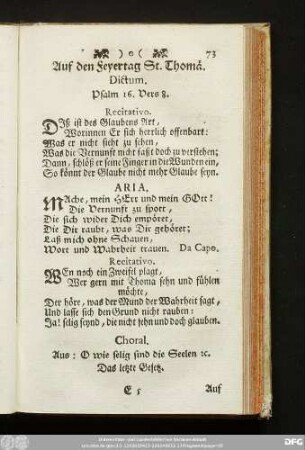 ) o ( 73
Auf den Feyertag St. Thomä.
Dictum.
Psalm 16. Vers 8.
Recitativo.
DIß ist des Glaubens Art,
Worinnen Er sich herrlich offenbart:
Was er nicht sieht zu sehen,
Was die Vernunft nicht faßt doch zu verstehen;
Dann, schlöß er seine Finger in die Wunden ein,
So könnt der Glaube nicht mehr Glaube seyn.
ARIA.
MAche, mein HErr und mein GOtt!
Die Vernunft zu spott,
Die sich wider Dich empöret,
Die Dir raubt, was Dir gehöret;
Laß mich ohne Schauen,
Wort und Wahrheit trauen. Da Capo.
Recitativo.
WEn noch ein Zweifel plagt,
Wer gern mit Thoma sehn und fühlen
möchte,
Der höre, was der Mund der Wahrheit sagt,
Und lasse sich den Grund nicht rauben:
Ja! selig seynd, die nicht sehn und doch glauben.
Choral.
Aus: O wie selig sind die Seelen ꝛc.
Das letzte Gesetz.
E 5 Auf
DFG